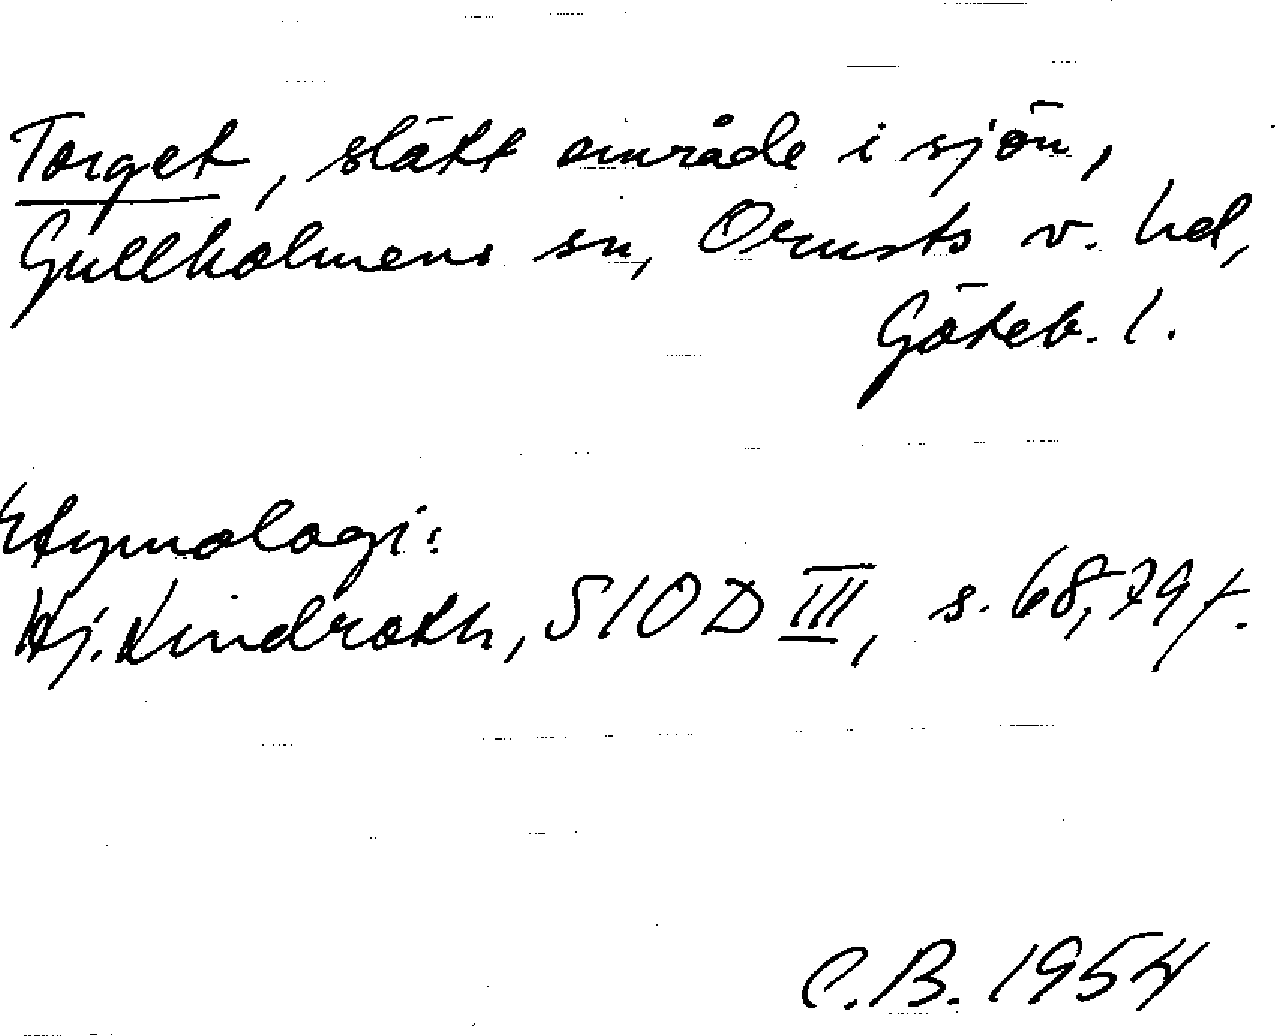 Torget, slätt område i sjön,
Gullholmens sn, Orusts v. hd,
Göteb. l.
Etymologi:
Hj. Lindroth, SIOD III, s. 68, 79 f.
C.B. 1954